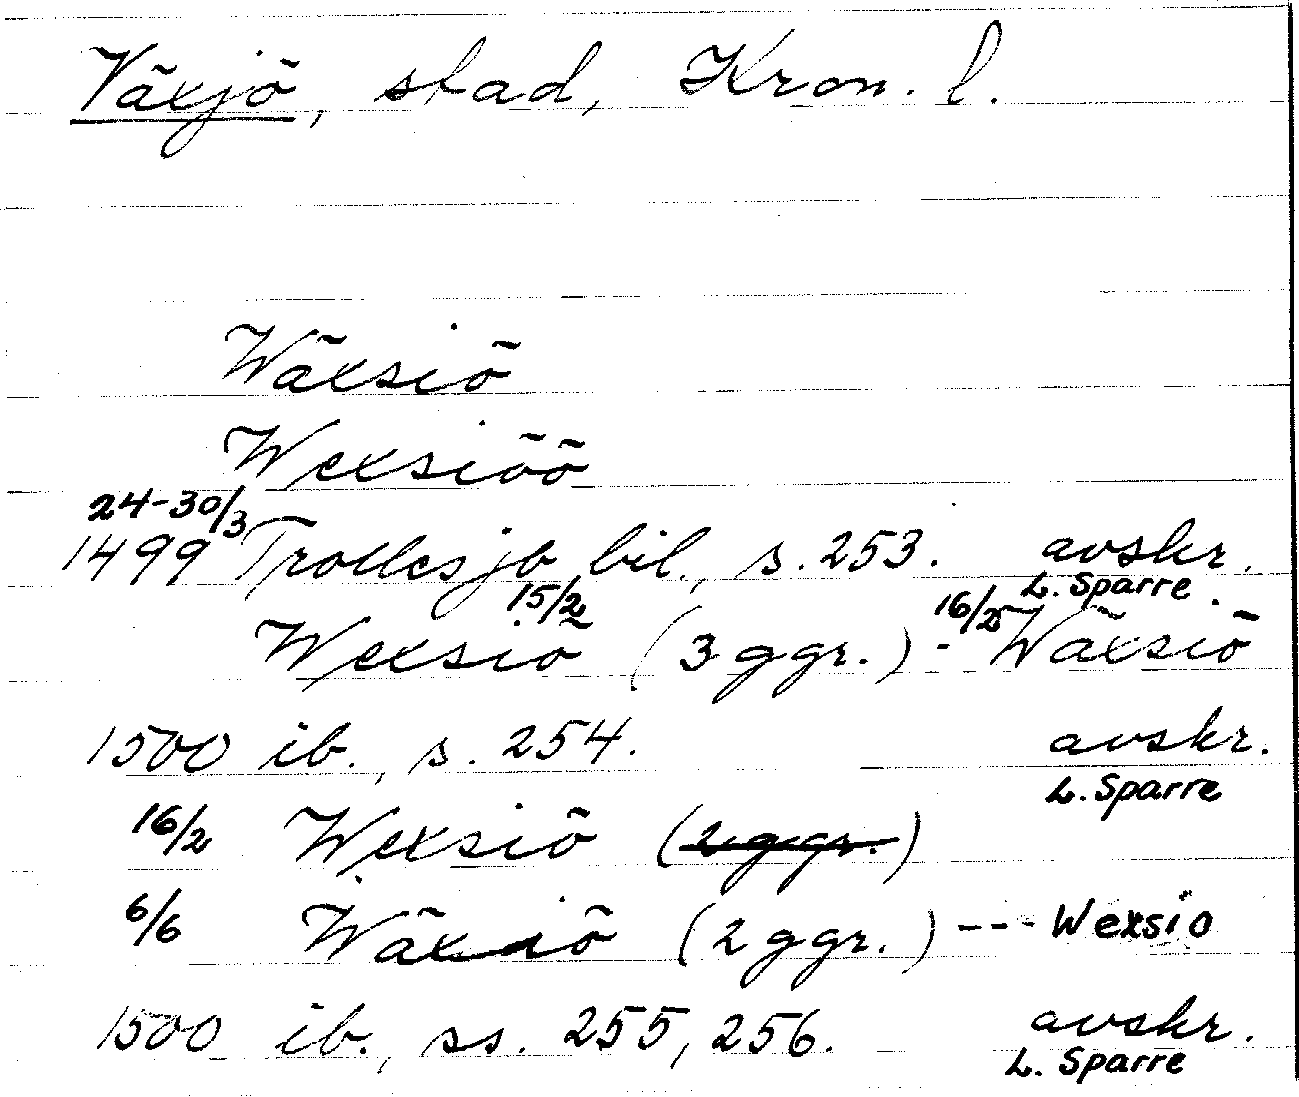 Växjö, stad, Kron. l.
Wäxsiö
Wexsiöö
24-30/3
1499 Trolles jb bil., s. 253. avskr.
L. Sparre.
15/2 16/2
Wexsiö (3 ggr.) - Wäxsiö
1500 ib., s. 254. avskr.
L. Sparre
16/2 Wexsiö (2 ggr.)
6/6 Wäxiö (2 ggr.) --- Wexsio
1500 ib., ss. 255, 256. avskr.
L. Sparre